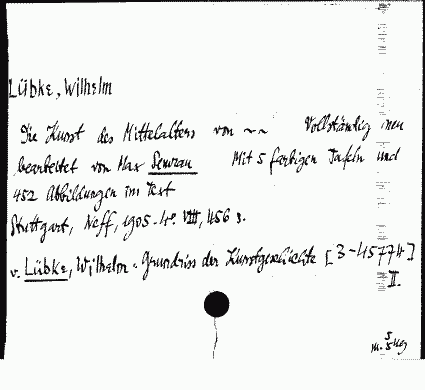 Lübke, Wilhelm
Die Kunst des Mittelalters von ~~ Vollständig neu
bearbeitet von Max Semrau Mit 5 farbigen Tafeln und
452 Abbildungen im Text
Stuttgart, Neff, 1905. 4°. VIII, 456 S.
v. Lübke, Wilhelm: Grundriss der Kunstgeschichte [3-45774]
II.